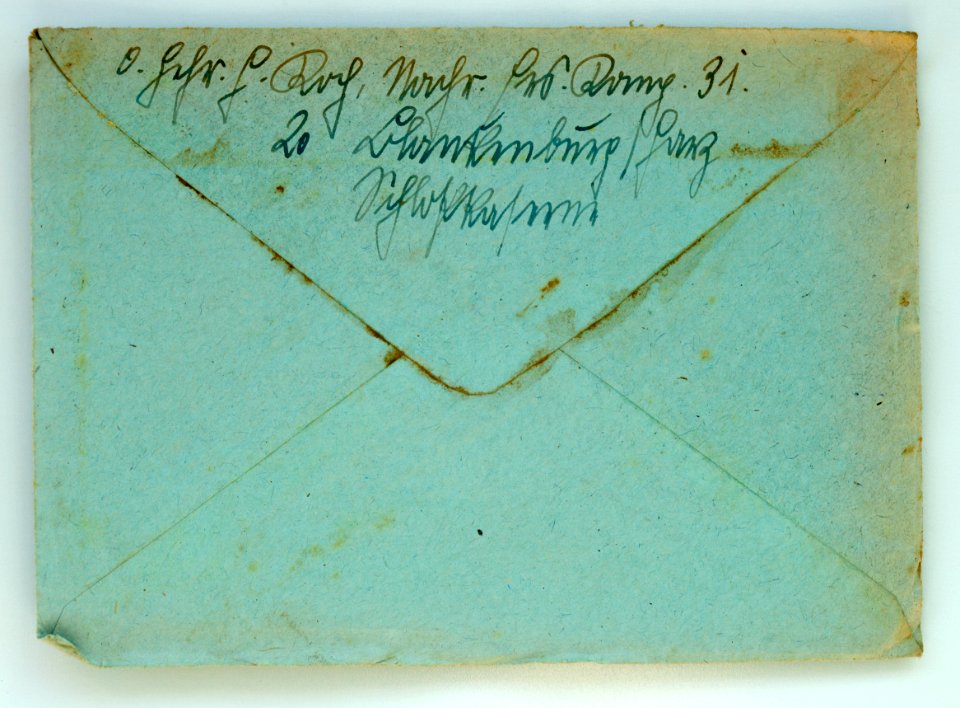 O. Gefr. H. Koch, Nachr. Ers. Komp. 31.
20 Blankenburg/Harz
Schloßkaserne